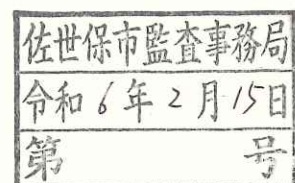 佐世保市監査事務局
令和6年2月15日
第 号